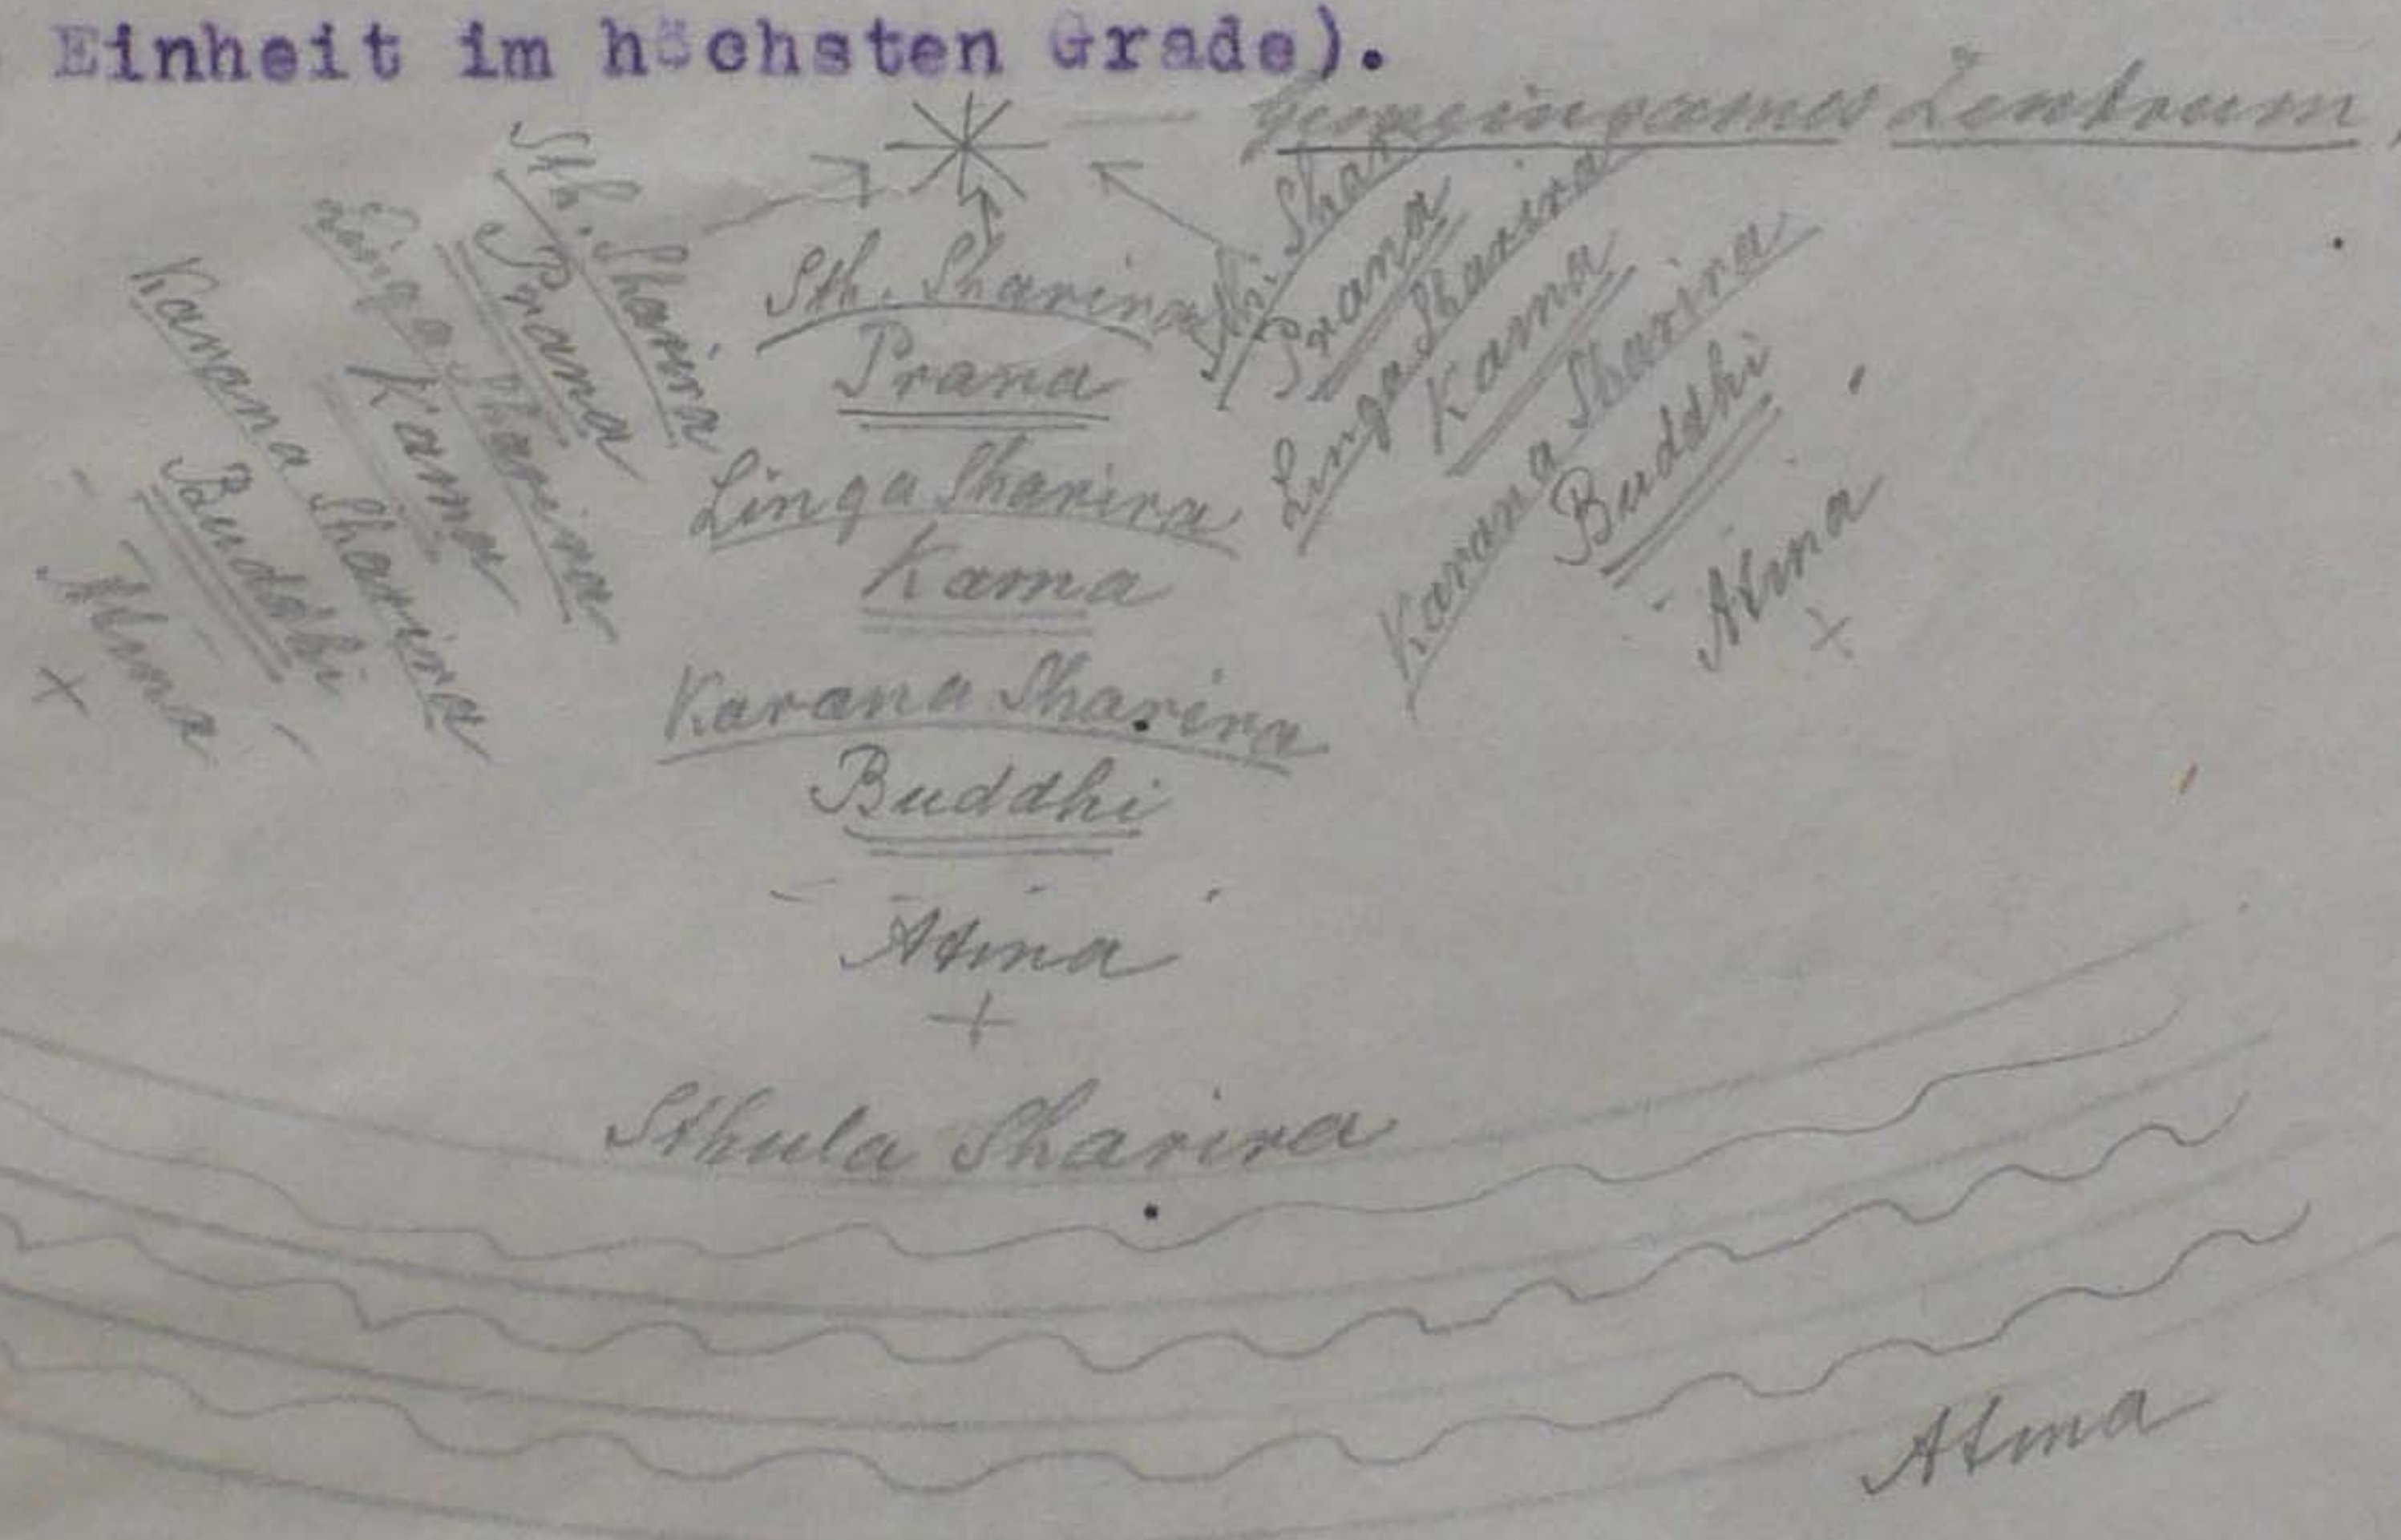 Einheit im höchsten Grade).
Gemeinsames Zentrum
Sth. Sharira
Prana
Linga Sharira
Kama
Karana Sharira
Buddhi
Atma
+
Sth. Sharira
Prana
Linga Sharira
Kama
Karana Sharira
Buddhi
Atma
+
Sth. Shar
Prana
Linga Sharira
Kama
Karana Sharira
Buddhi
Atma
+
Sthula Sharira
Atma